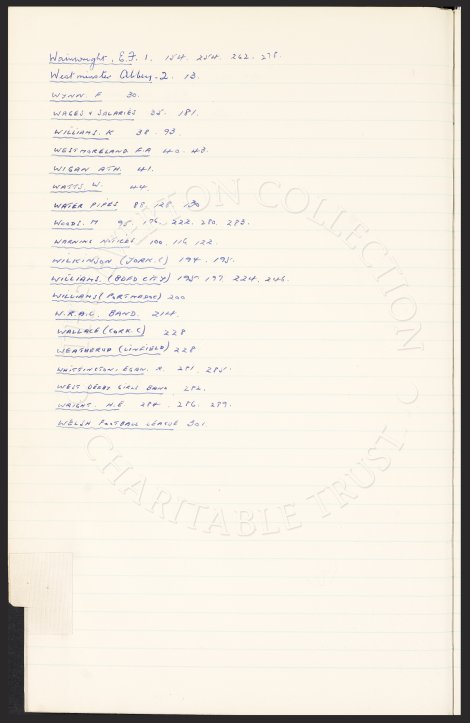 Wainwright. E.F. 1. 154. 254. 262. 278.
Westminster Abbey. 2. 13.
WYNN. F 30.
WAGES & SALARIES 35. 181.
WILLIAMS. K 38. 93
WESTMORELAND F.A 40. 43.
WIGAN ATH. 41.
WATTS W. 44.
WATER PIPES 88. 128. 130
WOODS. M 95. 176. 222. 280. 283.
WARNING NOTICES 100. 116. 122.
WILKINSON (YORK. C) 194. 195.
WILLIAMS. (BDFD CITY) 195. 197. 224. 246.
WILLIAMS (PORTMADOC) 200
W.R.A.C. BAND. 214.
WALLACE (CORK. C) 228
WEATHERUP (LINFIELD) 228
WHITTINGTON. EGAN. R. 281. 285.
WEST DERBY GIRLS BAND 282.
WRIGHT. H.E 284. 286. 299.
WELSH FOOTBALL LEAGUE 301
COLLECTION
CHARITABLE TRUST. ©